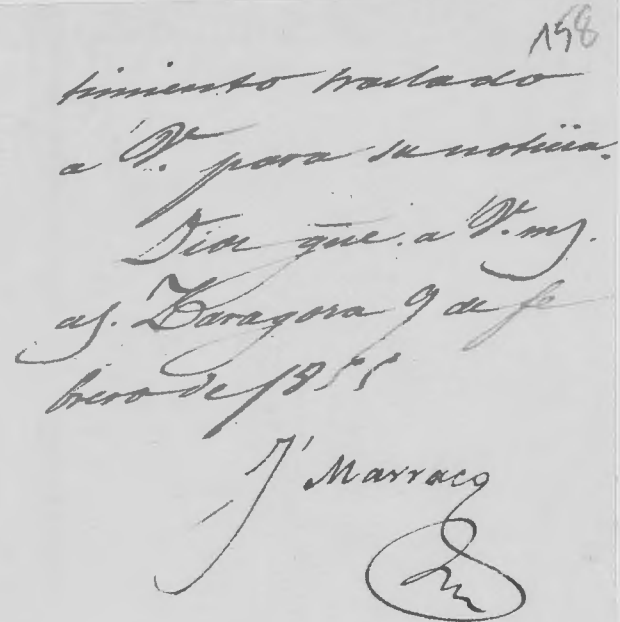 158
timiento traslado
a V. para su noticia.
Dios gue. a V. ms.
as. Zaragoza 9 de fe
brero de 1855
J' Marracq